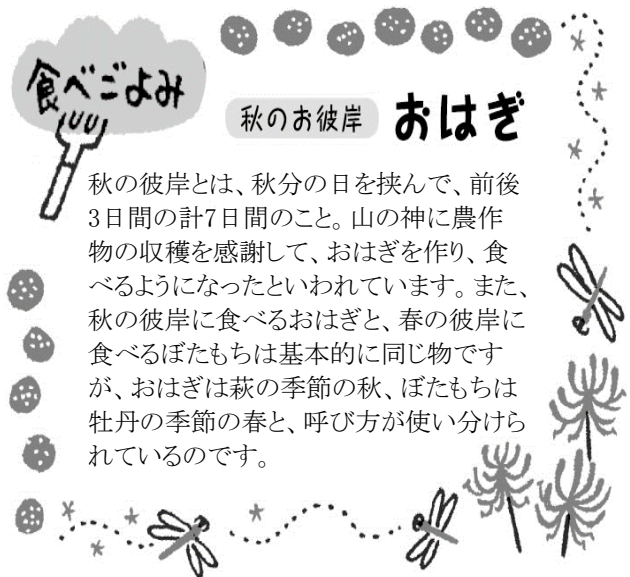 食べごよみ
秋のお彼岸 おはぎ
秋の彼岸とは、秋分の日を挟んで、前後
3日間の計7日間のこと。山の神に農作
物の収穫を感謝して、おはぎを作り、食
べるようになったといわれています。また、
秋の彼岸に食べるおはぎと、春の彼岸に
食べるぼたもちは基本的に同じ物です
が、おはぎは萩の季節の秋、ぼたもちは
牡丹の季節の春と、呼び方が使い分けら
れているのです。